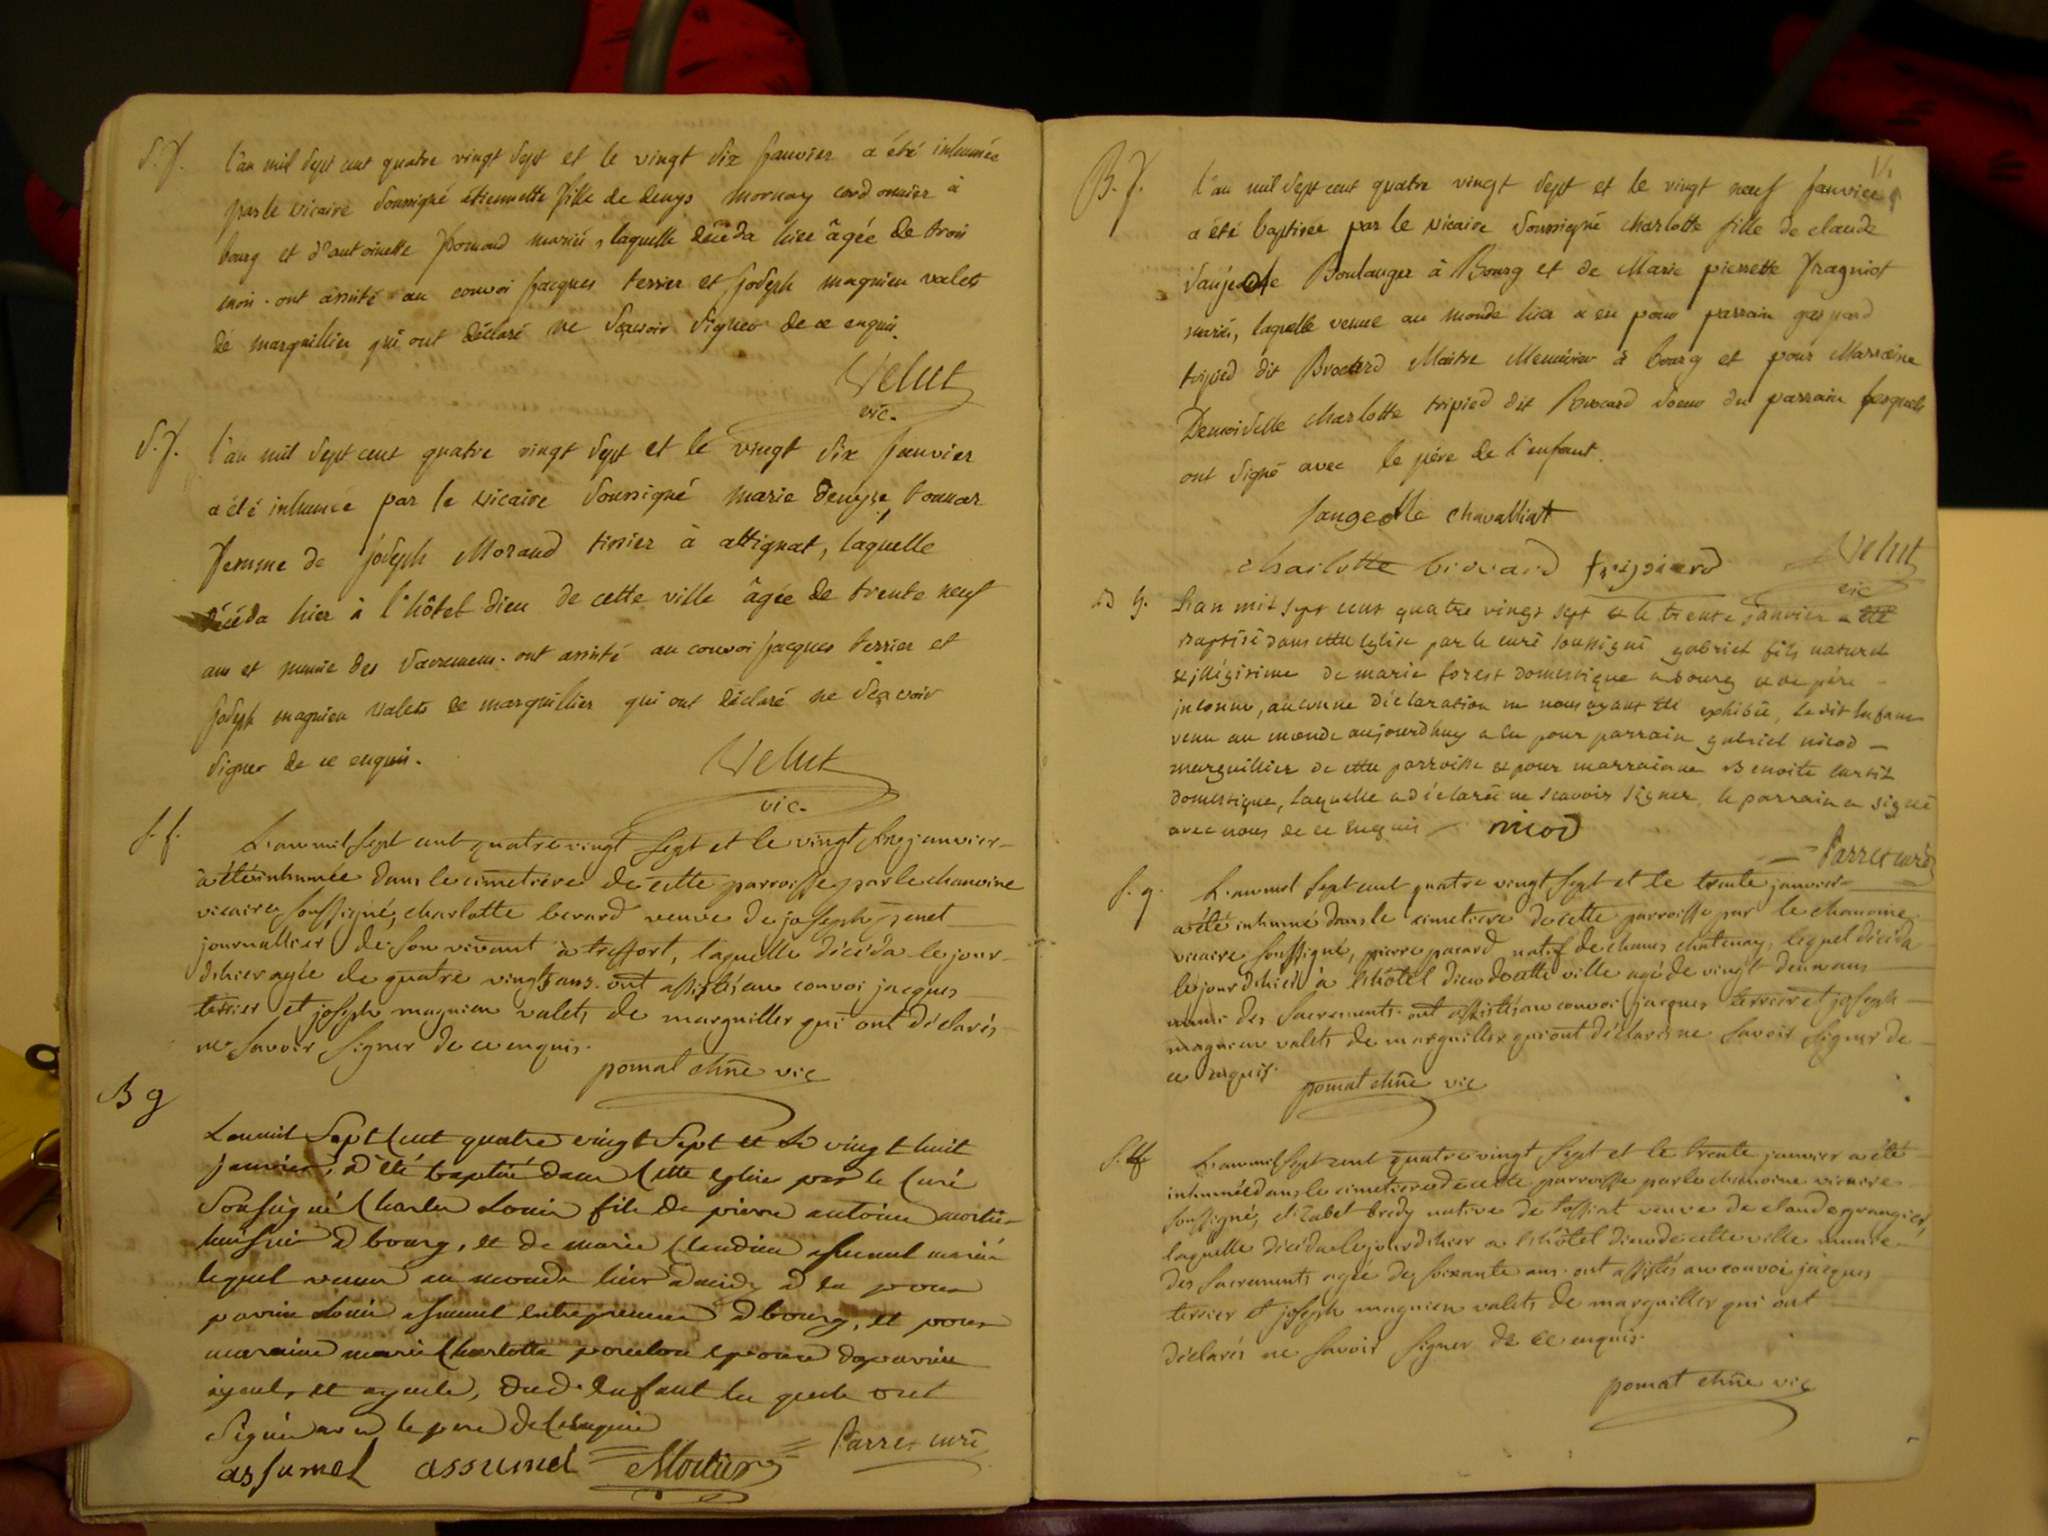 S.f. l'an mil Sept cent quatre vingt Sept et le vingt Six Janvier a été inhumée
par le vicaire Soussigné étiennette fille de denys Mornay cordonnier à
bourg et d'antoinette mariés, laquelle décéda hier âgée de trois
mois. ont assisté au convoi Jacques terrier et Joseph magnien valets
de marguillier qui ont déclaré ne Sçavoir Signer de ce enquis.
Velut
vic.
S.f. l'an mil Sept cent quatre vingt Sept et le vingt Six Janvier
a été inhumée par le vicaire Soussigné marie denyse
femme de Joseph Morand tissier à attignat, laquelle
décéda hier à l'hôtel dieu de cette ville âgée de trente neuf
ans et munie des Sacremens. ont assisté au convoi Jacques terrier et
Joseph magnien valets de marguillier qui ont déclaré ne Sçavoir
Signer de ce enquis.
Velut
vic.
S.f. L'an mil Sept cent quatre vingt Sept et le vingt janvier
a été inhumée dans le cimetière de cette parroisse par le chanoine
vicaire Soussigné, charlotte berard veuve de joseph
journallier de Son vivant à treffort, laquelle décéda le jour
d'hier agée de quatre vingts ans. ont assistés au convoi jacques
terrier et joseph magnien valets de marguiller qui ont déclarés
ne Savoir Signer de ce enquis.
pomat chne vic
B g
L'an mil Sept Cent quatre vingt Sept et le vingt huit
janvier, a été baptisé dans Cette eglise par le Curé
Soussigné Charles Louis fils de pierre antoine mortier
huissier a bourg, et de marie Claudine assumel mariés
lequel venu au monde hier a midy a eu pour
parrin Louis assumel entrepreneur a bourg, et pour
maraine marie Charlotte epouse du parrin
ayeul, et ayeule, dud. enfant les quels ont
Signés avec le pere de Ce enquis
assumel assumel Mortier Parres curé
B.f. l'an mil Sept cent quatre vingt Sept et le vingt neuf Janvier
a été baptisée par le vicaire Soussigné charlotte fille de claude
Boulanger à Bourg et de Marie pierrette fragniot
mariés, laquelle venue au monde hier a eu pour parrain gaspard
tripied dit Brocard Maitre Menuisier à bourg et pour Marraine
Demoiselle charlotte tripied dit Brocard Soeur du parrain lesquels
ont Signé avec le père de l'enfant.
chavalliat
charlotte brocard tripierd Velut
vic
B g. L'an mil sept cent quatre vingt sept et le trente janvier a été
baptisé dans cette eglise par le curé soussigné gabriel fils naturel
et illégitime de marie forest domestique a bourg et de père
inconnu, aucunne déclaration ne nous ayant été exhibée, ledit enfant
venu au monde aujourdhuy a eu pour parrain gabriel nicod
marguillier de cette parroisse et pour marrainne Benoite curtil
domestique, laquelle a déclarée ne scavoir signer, le parrain a signé
avec nous de ce enquis nicod
Parres curé
S. g. L'an mil Sept cent quatre vingt Sept et le trente janvier
a été inhumé dans le cimetiere de cette parroisse par le chanoine
vicaire Soussigné, pierre pacard natif de chatenay, lequel décéda
le jour d'hier à l'hôtel dieu de cette ville agé de vingt deux ans
muni des Sacrements. ont assistés au convoi jacques terrier et joseph
magnien valets de marguiller qui ont déclarés ne Savoir Signer de
ce enquis. pomat chne vic
S. ff L'an mil Sept cent quatre vingt Sept et le trente janvier a été
inhumée dans le cimetiere de cette parroisse par le chanoine vicaire
Soussigné, elizabet bredy native de tossiat veuve de claude grangier,
laquelle décéda le jour d'hier a l'hôtel dieu de cette ville munie
des Sacrements agée de Soixante ans. ont assistés au convoi jacques
terrier et joseph magnien valets de marguiller qui ont
déclarés ne Savoir Signer de ce enquis.
pomat chne vic